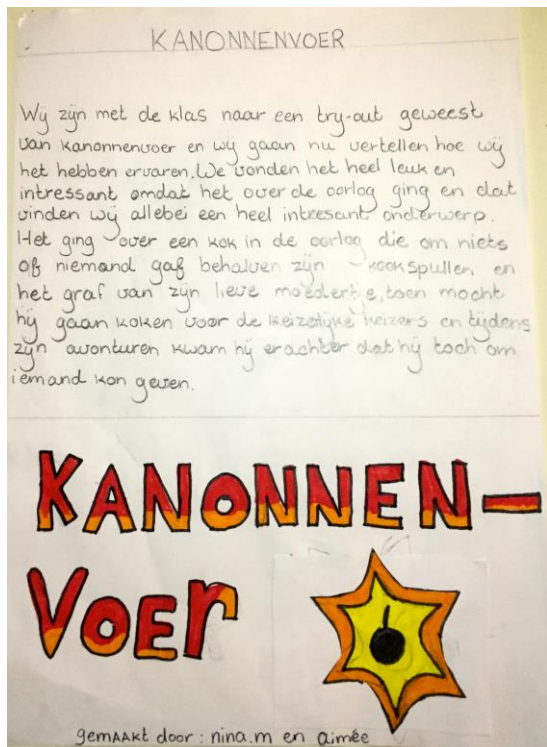 KANONNENVOER
Wij zijn met de klas naar een try-out geweest
van kanonnenvoer en wij gaan nu vertellen hoe wij
het hebben ervaren. We vonden het heel leuk en
intressant omdat het over de oorlog ging en dat
vinden wij allebei een heel intresant onderwerp.
Het ging over een kok in de oorlog die om niets
of niemand gaf behalven zijn kookspullen en
het graf van zijn lieve moedertje, toen mocht
hij gaan koken voor de keizerlijke keizers en tijdens
zijn avonturen kwam hij erachter dat hij toch om
iemand kon geven.
KANONNEN-
VOEr
gemAAkt door : nina.m en aimée